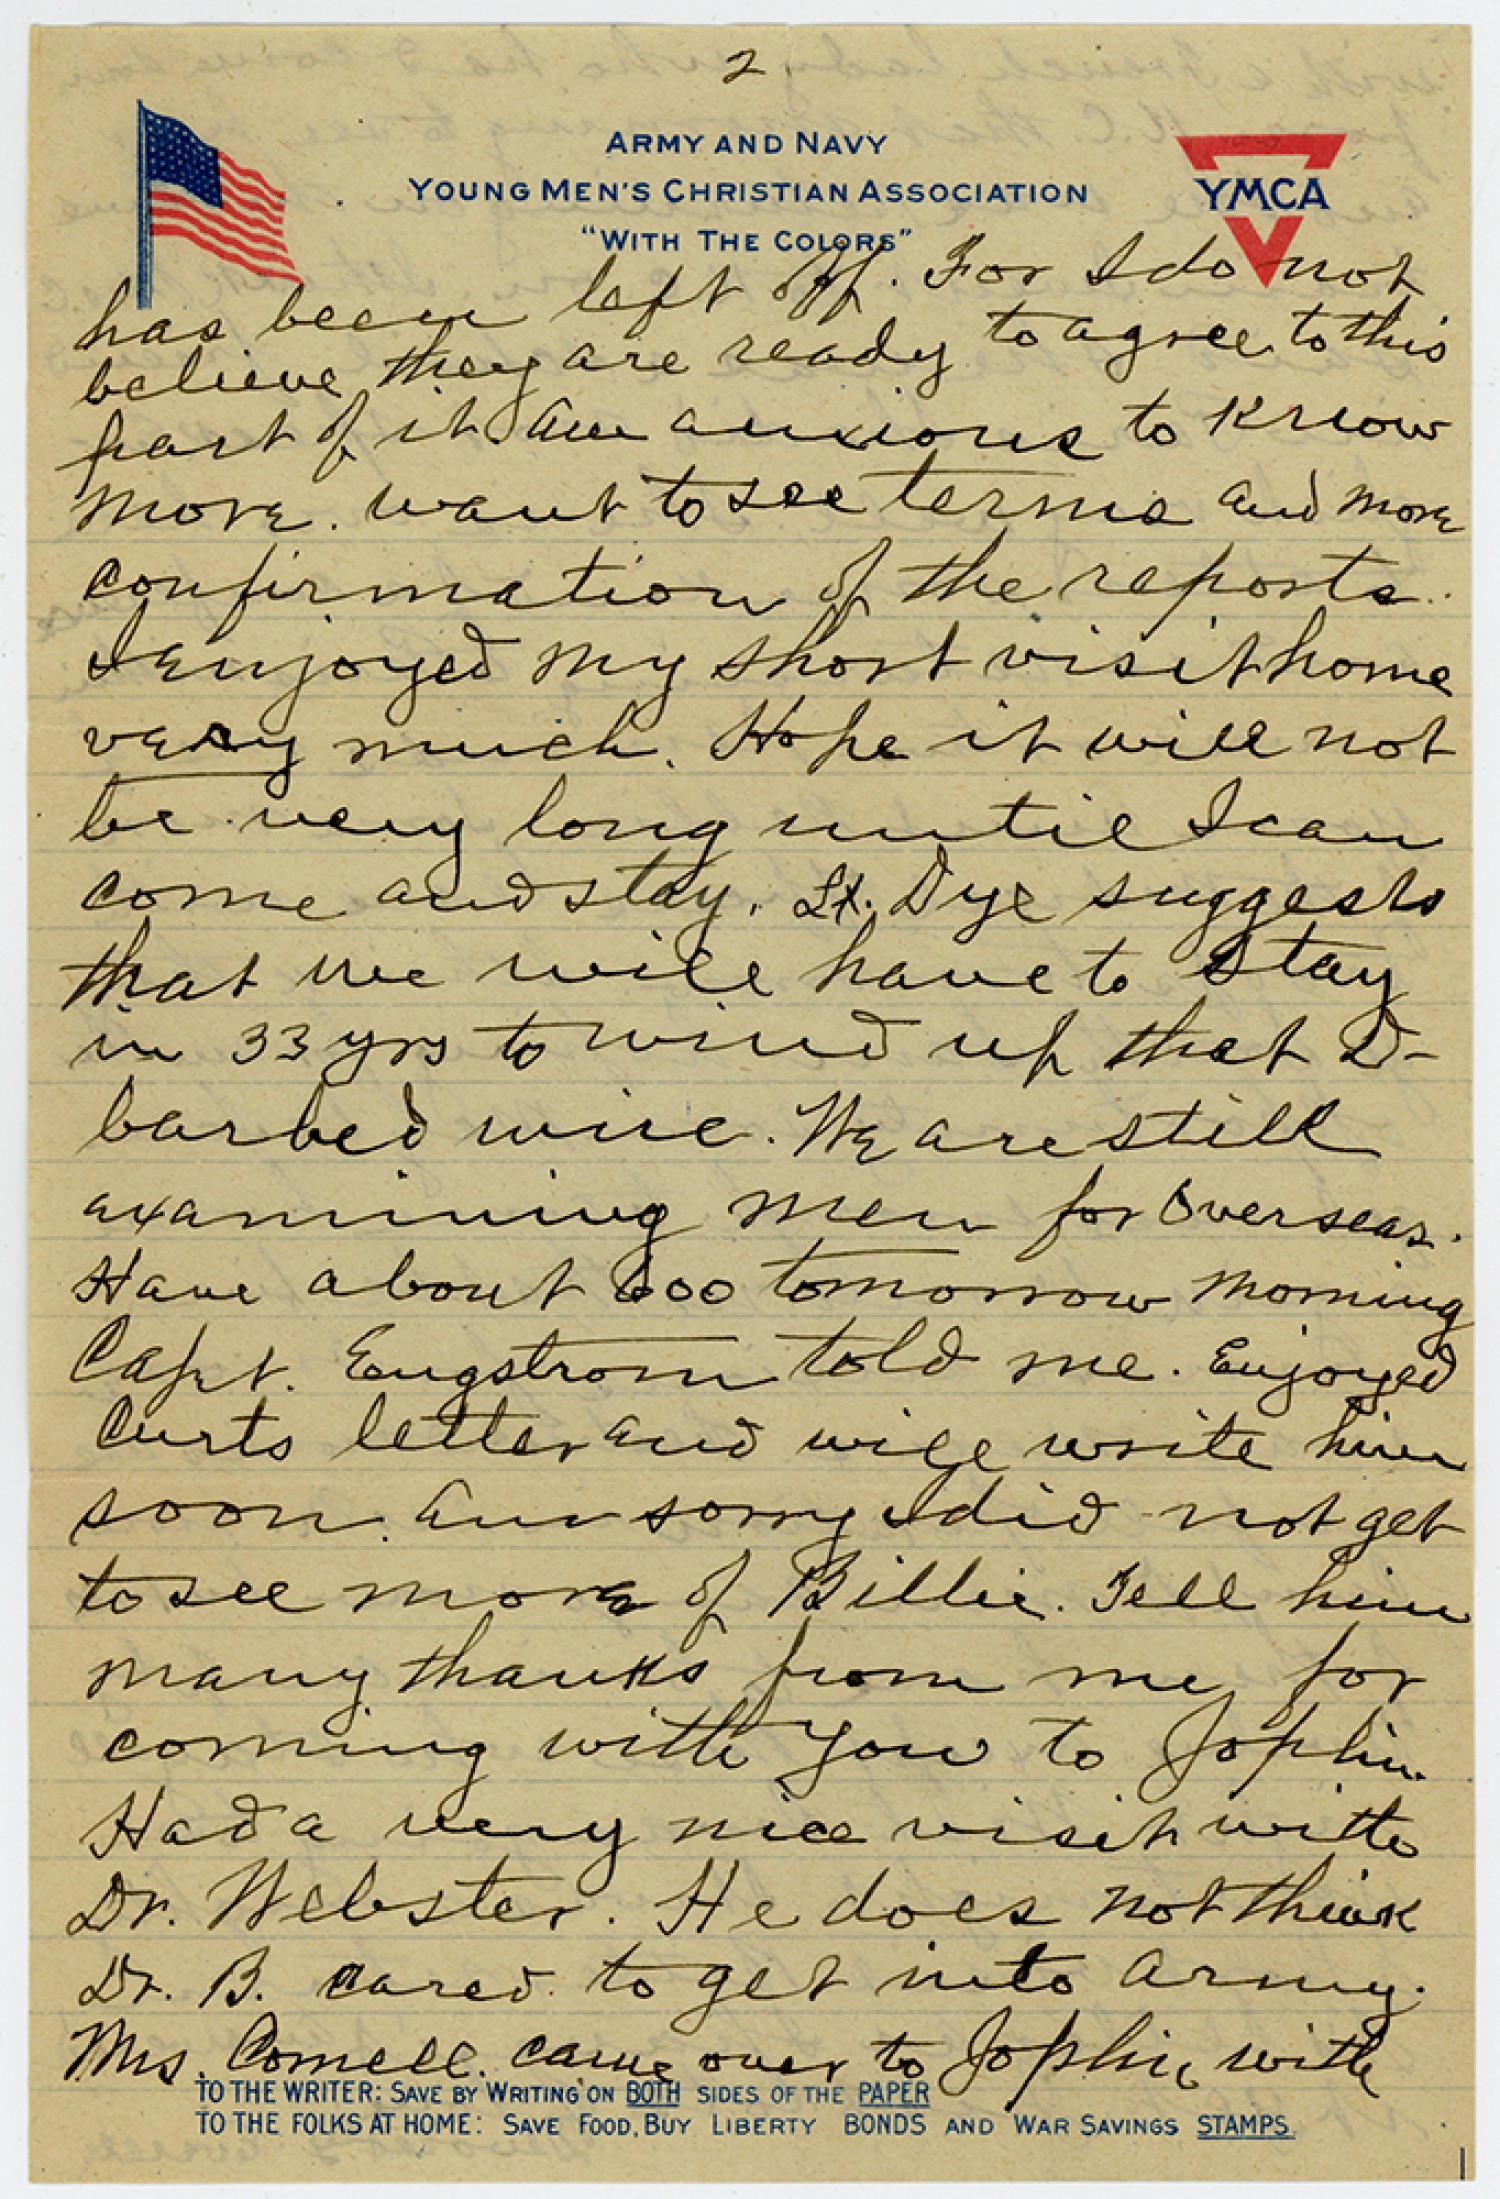 2
ARMY AND NAVY
YOUNG MEN'S CHRISTIAN ASSOCIATION
"WITH THE COLORS"
YMCA
has been left off. For I do not
believe they are ready to agree to this
part of it. Am anxious to know
more. want to see terms and more
confirmation of the reports.
I enjoyed my short visit home
very much. Hope it will not
be very long until I can
come and stay. Lt. Dye suggests
that we will have to stay
in 33 yrs to wind up that D-
barbed wire. We are still
examining men for overseas.
Have about 600 tomorrow morning
Capt. Engstrom told me. Enjoyed
Curts letter and will write him
soon. Am sorry I did not get
to see more of Billie. Tell him
many thanks from me for
coming with you to Joplin.
Had a very nice visit with
Dr. Webster. He does not think
Dr. B. cared to get into army.
Mrs. Cornell came over to Joplin with
TO THE WRITER: SAVE BY WRITING ON BOTH SIDES OF THE PAPER
TO THE FOLKS AT HOME: SAVE FOOD, BUY LIBERTY BONDS AND WAR SAVINGS STAMPS.